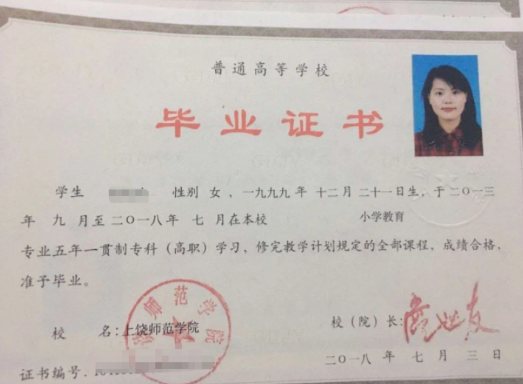 普通高等学校
毕业证书
学生 性别 女，一九九九年 十二月 二十一日生，于二〇一三
年 九 月至二〇一八年 七 月在本校 小学教育
专业五年一贯制专科（高职）学习，修完教学计划规定的全部课程，成绩合格，
准予毕业。
校 名：上饶师范学院 校（院）长：
师范学院
二〇一八 年 七 月 三 日
证书编号：